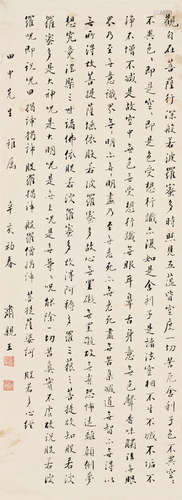 觀自在菩薩行深般若波羅蜜多時照見五蘊皆空度一切苦厄舍利子色不異空空
不異色色即是空空即是色受想行識亦復如是舍利子是諸法空相不生不滅不垢不
淨不增不減是故空中無色無受想行識無眼耳鼻舌身意無色聲香味觸法無眼
界乃至無意識界無無明亦無無明盡乃至無老死亦無老死盡無苦集滅道無智亦無得以
無所得故菩提薩埵依般若波羅蜜多故心無罣礙無罣礙故無有恐怖遠離顛倒夢
想究竟涅槃三世諸佛依般若波羅蜜多故得阿耨多羅三藐三菩提故知般若波
羅蜜多是大神呪是大明呪是無上呪是無等等呪能除一切苦真實不虛故說般若波
羅蜜多呪即說呪曰揭諦揭諦般羅揭諦般羅僧揭諦菩提薩婆訶 般若多心經
田中先生 雅属 辛未初春 肅親王